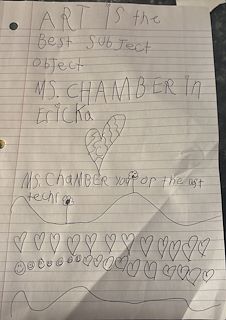 ART is the
Best Subject
object
MS. CHAMBER in
Ericka
MS. CHAMBER of the